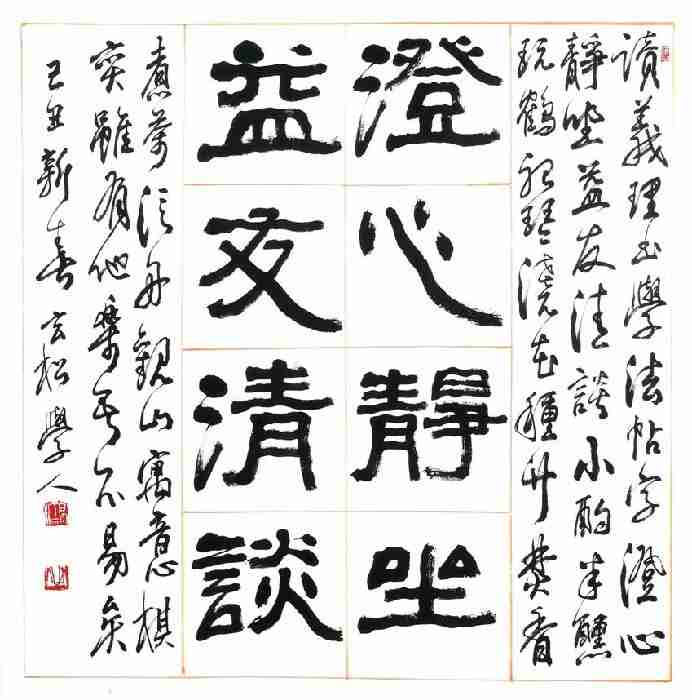 讀義理書學法帖字澄心
靜坐益友清談小酌半醺
玩鶴聽琴澆花種竹焚香
澄心靜坐
益友清談
煮泛舟觀山寓意棋
弈雖有他樂吾不易矣
己丑新春玄松學人